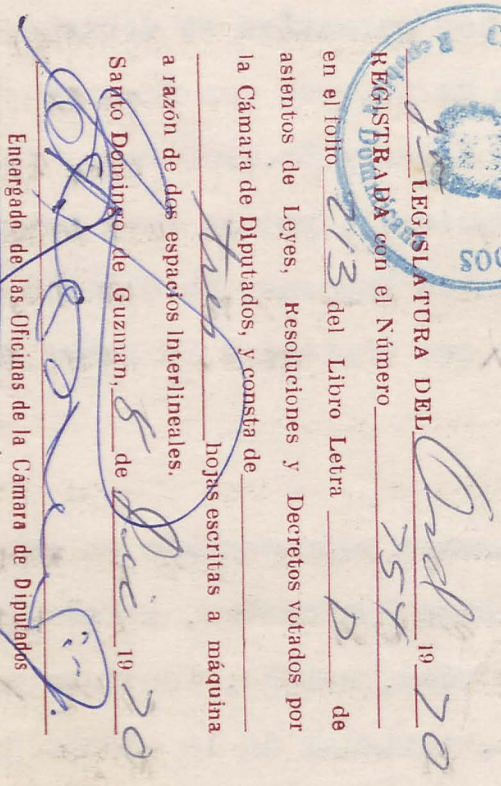 2a LEGISLATURA DEL Ord 1970
REGISTRADA con el Número 754
en el folio 213 del Libro Letra D. de
asientos de Leyes, Resoluciones y Decretos votados por
la Cámara de Diputados, y consta de
tres hojas escritas a máquina
a razón de dos espacios interlineales.
Santo Domingo de Guzman, 8 de Dic 1970
Encargado de las Oficinas de la Cámara de Diputados
República Dominicana